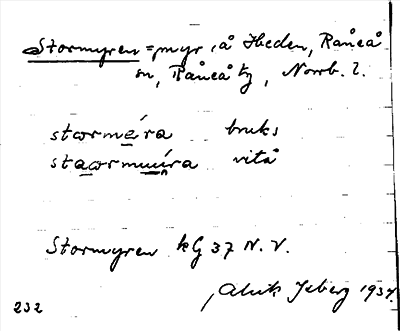 Stormyren = myr, å Heden, Råneå
sn, Råneå tg, Norrb. l.
stormera bruks
staormuura vitå
Stormyren kG 37 N.V.
1937.
232